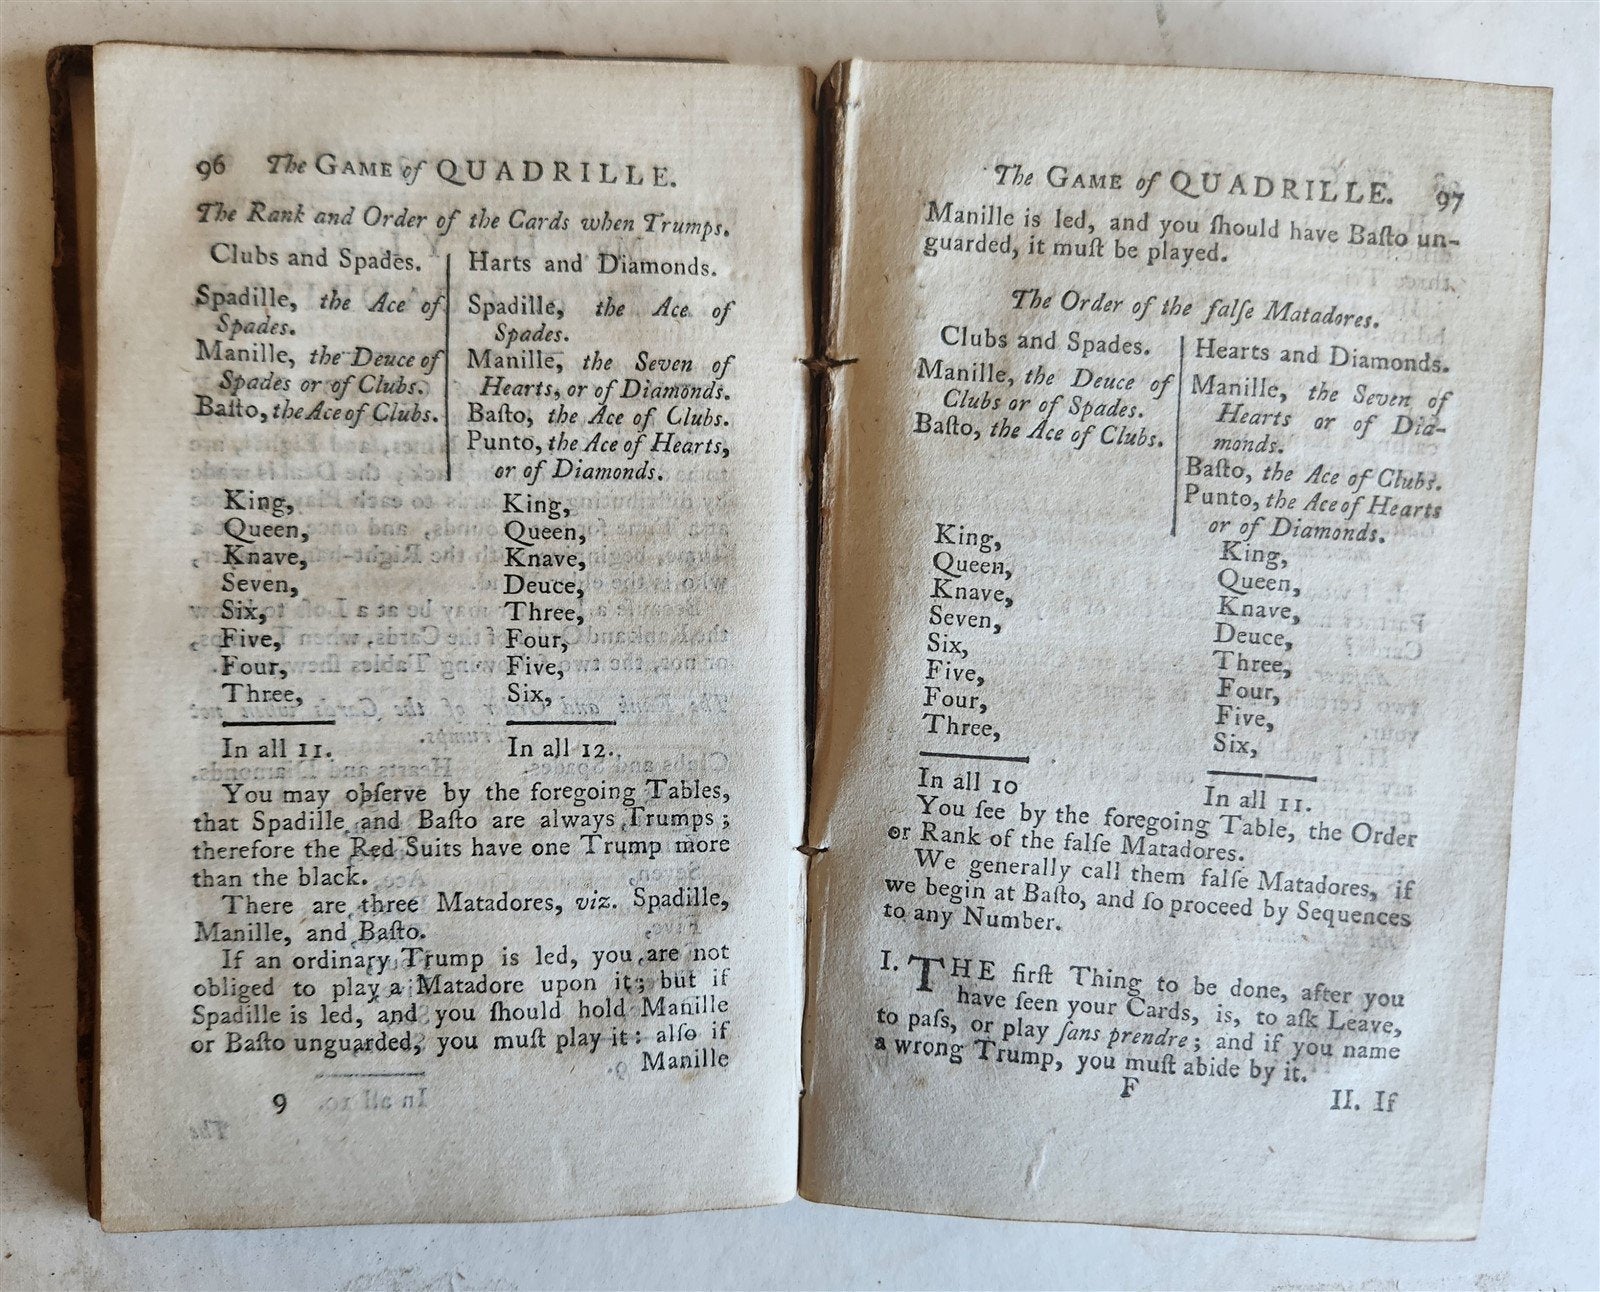 96 The GAME of QUADRILLE.
The Rank and Order of the Cards when Trumps.
Clubs and Spades.
Spadille, the Ace of
Spades.
Manille, the Deuce of
Spades or of Clubs.
Baſto, the Ace of Clubs.
King,
Queen,
Knave,
Seven,
Six,
Five,
Four,
Three,
In all 11.
Harts and Diamonds.
Spadille, the Ace of
Spades.
Manille, the Seven of
Hearts, or of Diamonds.
Baſto, the Ace of Clubs.
Punto, the Ace of Hearts,
or of Diamonds.
King,
Queen,
Knave,
Deuce,
Three,
Four,
Five,
Six,
In all 12.
You may obſerve by the foregoing Tables,
that Spadille and Baſto are always Trumps;
therefore the Red Suits have one Trump more
than the black.
There are three Matadores, viz. Spadille,
Manille, and Baſto.
If an ordinary Trump is led, you are not
obliged to play a Matadore upon it; but if
Spadille is led, and you ſhould hold Manille
or Baſto unguarded, you muſt play it: alſo if
Manille
9
The GAME of QUADRILLE. 97
Manille is led, and you ſhould have Baſto un-
guarded, it muſt be played.
The Order of the falſe Matadores.
Clubs and Spades.
Manille, the Deuce of
Clubs or of Spades.
Baſto, the Ace of Clubs.
King,
Queen,
Knave,
Seven,
Six,
Five,
Four,
Three,
In all 10
Hearts and Diamonds.
Manille, the Seven of
Hearts or of Dia-
monds.
Baſto, the Ace of Clubs.
Punto, the Ace of Hearts
or of Diamonds.
King,
Queen,
Knave,
Deuce,
Three,
Four,
Five,
Six,
In all 11.
You ſee by the foregoing Table, the Order
or Rank of the falſe Matadores.
We generally call them falſe Matadores, if
we begin at Baſto, and ſo proceed by Sequences
to any Number.
I. THE firſt Thing to be done, after you
have ſeen your Cards, is, to aſk Leave,
to paſs, or play ſans prendre; and if you name
a wrong Trump, you muſt abide by it.
F
II. If